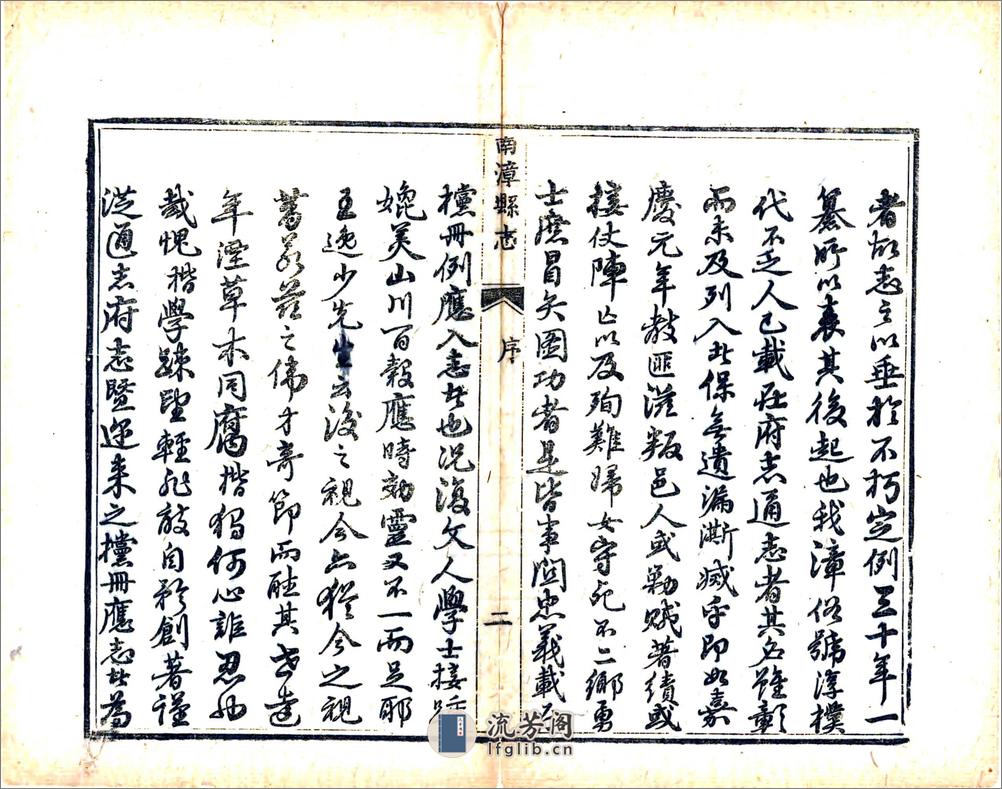 者故志之以垂於不朽定例三十年一
纂所以表其後起也我漳俗號淳樸
代不乏人已載在府志通志者其名雖彰
而未及列入此保無遺漏澌滅乎即如嘉
慶元年教匪滋叛邑人或勦賊著績或
接仗陣亡以及殉難婦女守死不二鄉勇
士庶冒矢圖功者是皆事関忠義載在
南漳縣志
序
二
檔冊例應入志者也况復文人學士接踵
媲美山川百穀應時効靈又不一而足耶
王逸少先生云後之視今亦猶今之視
昔若茲之偉才奇節而聽其世遠
年湮草木同腐楷獨何心誰忍
哉愧楷學疎望輕非敢自矜創著謹
從通志府志暨邇来之檔冊應志者為
流芳阁
lfglib.cn